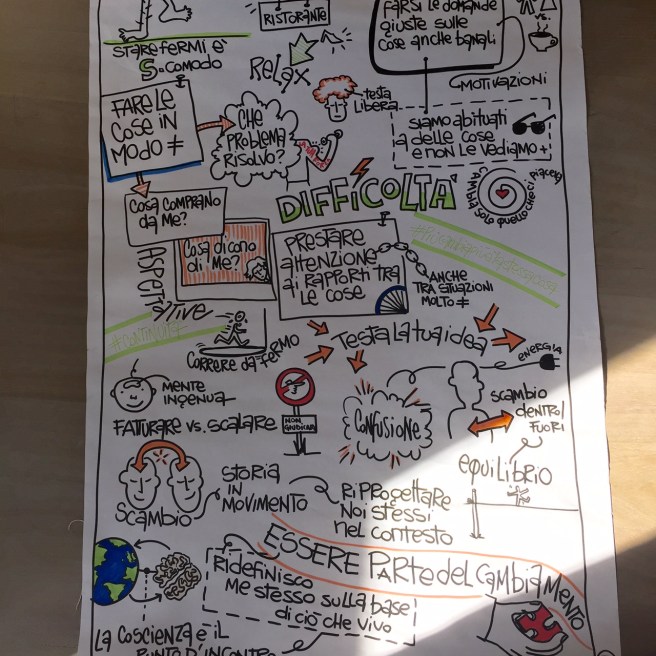 RISTORANTE
FARSI LE DOMANDE
giuste sulle
cose anche banali
VS.
STARE FERMI È
S=COMODO
RELAX
MOTIVAZIONI
FARE LE
COSE IN
MODO ≠
CHE
PROBLEMA
RISOLVO?
testa
LIBERA
siamo abituati
a delle cose
e non le vediamo +
DIFFICOLTÀ
CAMBIA SOLO QUELLO CHE CI PIACE
COSA COMPRANO
da Me?
Cosa dicono
di Me?
PRESTARE
attenzione
ai RAPPORTI TRA
LE COSE
ANCHE
TRA SITUAZIONI
MOLTO ≠
CORRERE da FERMO
Testa la tua idea
ENERGIA
MENTE
INGENUA
FATTURARE vs. SCALARE
NON
GIUDICARE
CONFUSIONE
SCAMBIO
dentro/
FUORI
EQUILIBRIO
SCAMBIO
STORIA
IN
MOVIMENTO
RIPROGETTARE
NOI STESSI
nel contesto
ESSERE PARTE del CAMBIAMENTO
RIDEFINISCO
Me stesso sulla base
di ciò che vivo
LA COSCIENZA È IL
PUNTO D'INCONTRO